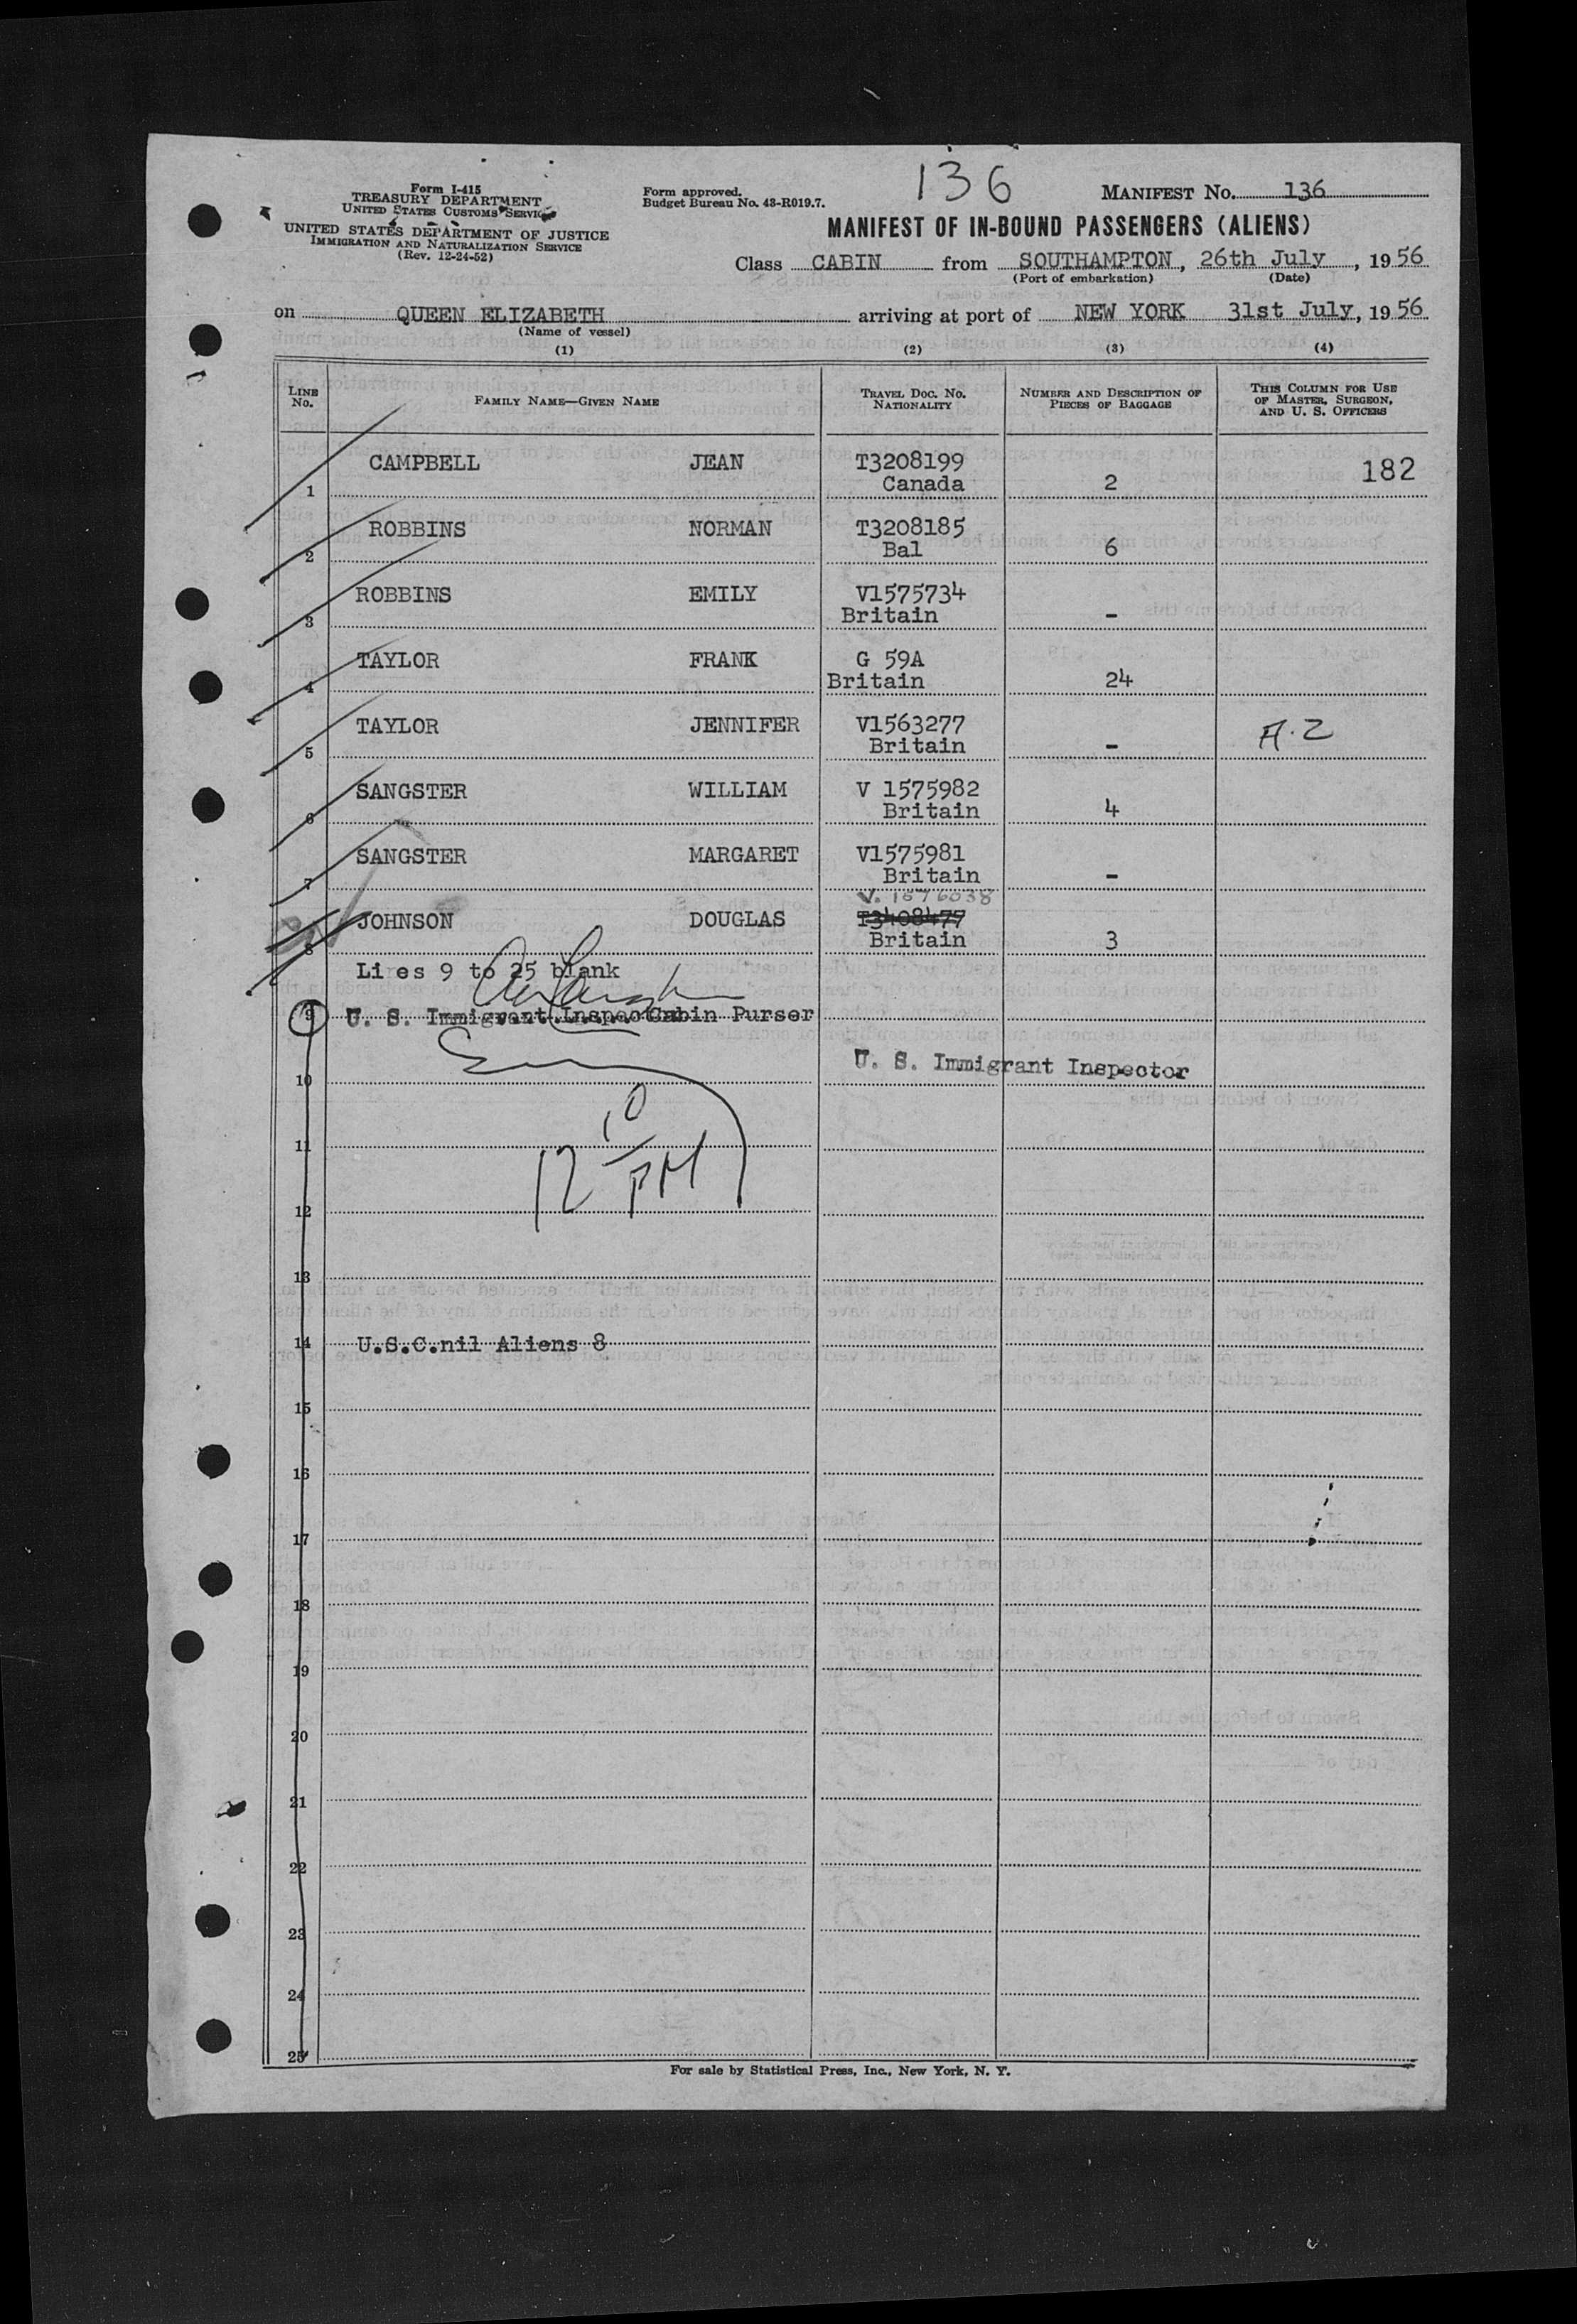 136
Form I-415
TREASURY DEPARTMENT
UNITED STATES CUSTOMS SERVICE
UNITED STATES DEPARTMENT OF JUSTICE
IMMIGRATION AND NATURALIZATION SERVICE
(Rev. 12-24-52)
Form approved.
Budget Bureau No. 43-R019.7.
MANIFEST No. 136
MANIFEST OF IN-BOUND PASSENGERS (ALIENS)
Class CABIN from SOUTHAMPTON, 26th July, 1956
(Port of embarkation) (Date)
on QUEEN ELIZABETH arriving at port of NEW YORK 31st July, 1956
(Name of vessel)
(1) (2) (3) (4)
LINE No. FAMILY NAME—GIVEN NAME TRAVEL DOC. NO. NATIONALITY NUMBER AND DESCRIPTION OF PIECES OF BAGGAGE THIS COLUMN FOR USE OF MASTER, SURGEON, AND U. S. OFFICERS
CAMPBELL JEAN T3208199 182
1 Canada 2
ROBBINS NORMAN T3208185
2 Bal 6
ROBBINS EMILY V1575734
3 Britain -
TAYLOR FRANK G 59A
4 Britain 24
TAYLOR JENNIFER V1563277 A.2
5 Britain -
SANGSTER WILLIAM V 1575982
6 Britain 4
SANGSTER MARGARET V1575981
7 Britain -
V. 1576038
JOHNSON DOUGLAS T3408477
8 Britain 3
Li es 9 to 25 blank
9 U. S. Immigrant Inspector Cabin Purser
U. S. Immigrant Inspector
10
10
11
12 PM
12
13
14 U.S.C.nil Aliens 8
15
16
17
18
19
20
21
22
23
24
25
For sale by Statistical Press, Inc., New York, N. Y.